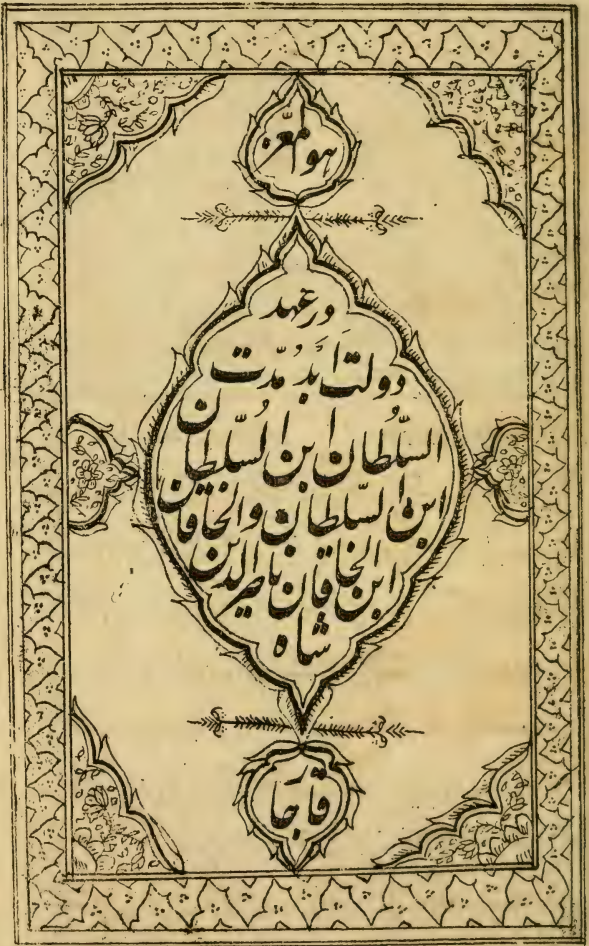 هوالمعز
در عهد
دولت اَبَد مُدّت
السّلُطان ابن السّلُطان
ابن السّلطان والخاقان
ابن الخاقان ناصرالدین
شاه
قاجار